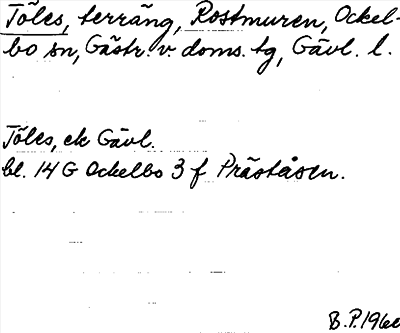 Töles, terräng, Rostmuren, Ockel-
bo sn, Gästr. v. doms. tg, Gävl. l.
Töles, ek Gävl.
bl. 14 G Ockelbo 3 f Präståsen.
B.P.